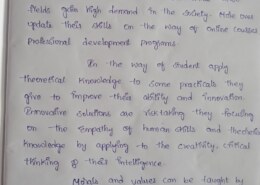 fields gain high demand in the society. Make over
update their skills on the way of online courses
professional development programs.
In the way of student apply
theoretical knowledge to some practicals they
give to improve their ability and innovation.
Innovative solutions are they focusing
on the empathy of human skills and theoretical
knowledge by applying to the creativity, critical
thinking & their intelligence.
Morals and values can be taught by